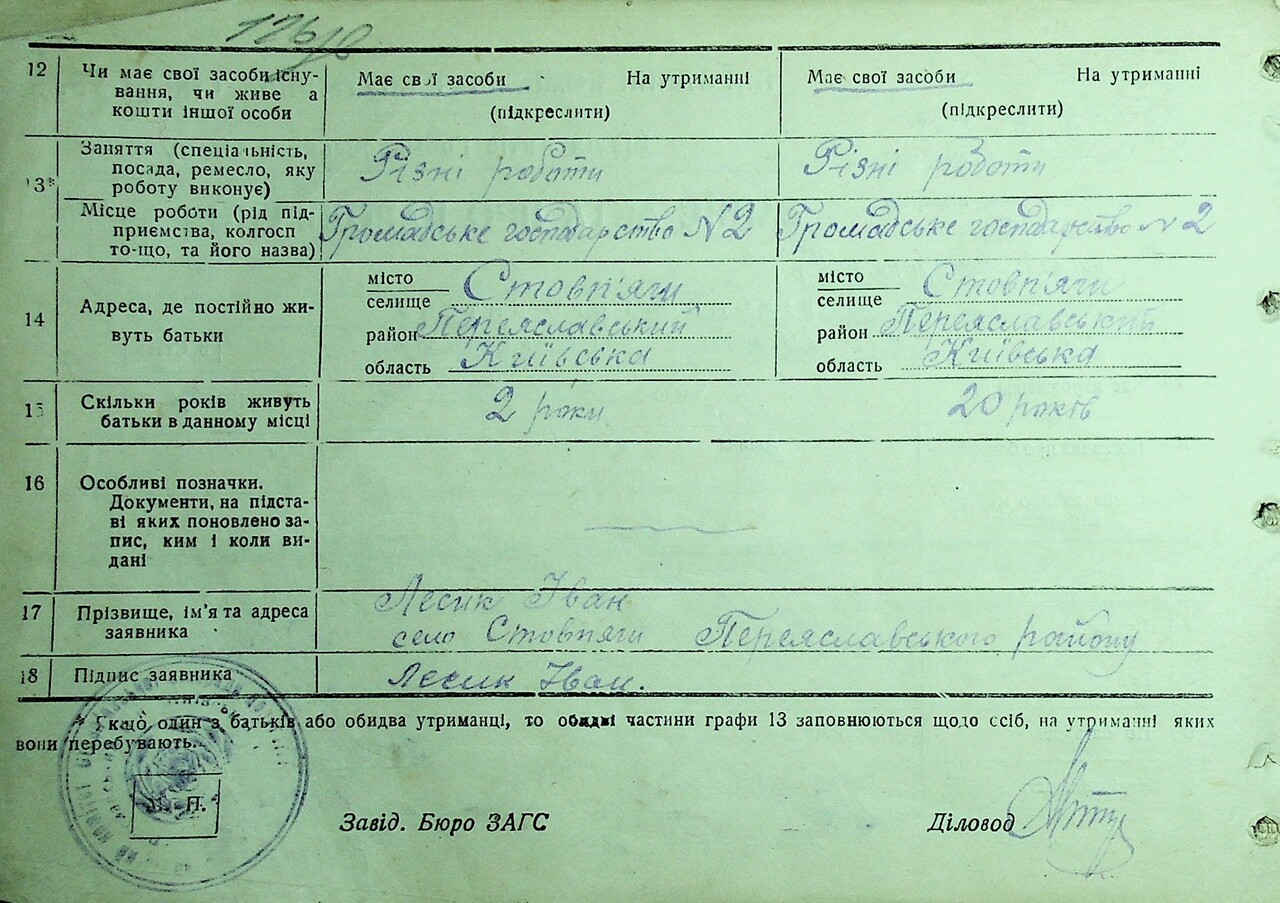 12 Чи має свої засоби існу-
вання, чи живе а
кошти іншої особи
Має свої засоби На утриманні
(підкреслити)
Має свої засоби На утриманні
(підкреслити)
13* Заняття (спеціальність,
посада, ремесло, яку
роботу виконує)
Різні роботи
Різні роботи
Місце роботи (рід під-
приємства, колгосп
то-що, та його назва)
Громадське господарство N 2
Громадське господарство N 2
14 Адреса, де постійно жи-
вуть батьки
місто
селище Стовп'яги
район Переяславський
область Київська
місто
селище Стовп'яги
район Переяславський
область Київська
15 Скільки років живуть
батьки в данному місці
2 роки
20 років
16 Особливі позначки.
Документи, на підста-
ві яких поновлено за-
пис, ким і коли ви-
дані
17 Прізвище, ім'я та адреса
заявника
Лесик Іван
село Стовпяги Переяславського району
18 Підпис заявника
Лесик Іван.
* Якщо один з батьків або обидва утриманці, то обидві частини графи 13 заповнюються щодо осіб, на утриманні яких
вони перебувають.
М. П.
Завід. Бюро ЗАГС
Діловод